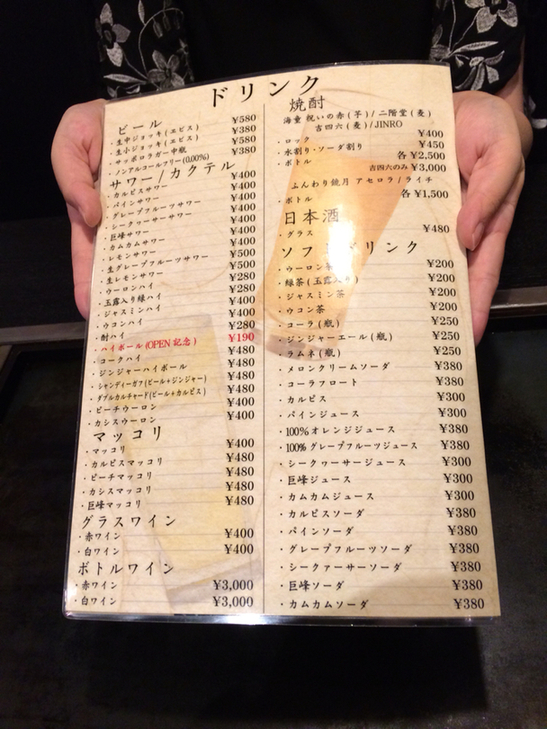 ドリンク
ビール
・生中ジョッキ(エビス) ¥580
・生小ジョッキ(エビス) ¥380
・サッポロラガー中瓶 ¥580
・ノンアルコールフリー(0.00%) ¥380
サワー/カクテル
・カルピスサワー ¥400
・パインサワー ¥400
・グレープフルーツサワー ¥400
・シークヮーサーサワー ¥400
・巨峰サワー ¥400
・カムカムサワー ¥400
・レモンサワー ¥400
・生グレープフルーツサワー ¥500
・生レモンサワー ¥500
・ウーロンハイ ¥280
・玉露入り緑ハイ ¥280
・ジャスミンハイ ¥400
・ウコンハイ ¥400
・酎ハイ ¥280
・ハイボール(OPEN記念) ¥190
・コークハイ ¥480
・ジンジャーハイボール ¥480
・シャンディーガフ(ビール+ジンジャー) ¥480
・ダブルカルチャード(ビール+カルピス) ¥480
・ピーチウーロン ¥400
・カシスウーロン ¥400
マッコリ
・マッコリ ¥400
・カルピスマッコリ ¥480
・ピーチマッコリ ¥480
・カシスマッコリ ¥480
・巨峰マッコリ ¥480
グラスワイン
・赤ワイン ¥400
・白ワイン ¥400
ボトルワイン
・赤ワイン ¥3,000
・白ワイン ¥3,000
焼酎
海童 祝いの赤(芋)/二階堂(麦)
吉四六(麦)/JINRO
・ロック ¥400
・水割り・ソーダ割り ¥450
・ボトル 各¥2,500
吉四六のみ¥3,000
ふんわり鏡月 アセロラ/ライチ
・ボトル 各¥1,500
日本酒
・グラス ¥480
ソフトドリンク
・ウーロン茶 ¥200
・緑茶(玉露入り) ¥200
・ジャスミン茶 ¥200
・ウコン茶 ¥200
・コーラ(瓶) ¥250
・ジンジャーエール(瓶) ¥250
・ラムネ(瓶) ¥250
・メロンクリームソーダ ¥380
・コーラフロート ¥380
・カルピス ¥300
・パインジュース ¥300
・100%オレンジジュース ¥380
・100%グレープフルーツジュース ¥380
・シークヮーサージュース ¥300
・巨峰ジュース ¥300
・カムカムジュース ¥300
・カルピスソーダ ¥380
・パインソーダ ¥380
・グレープフルーツソーダ ¥380
・シークァーサーソーダ ¥380
・巨峰ソーダ ¥380
・カムカムソーダ ¥380